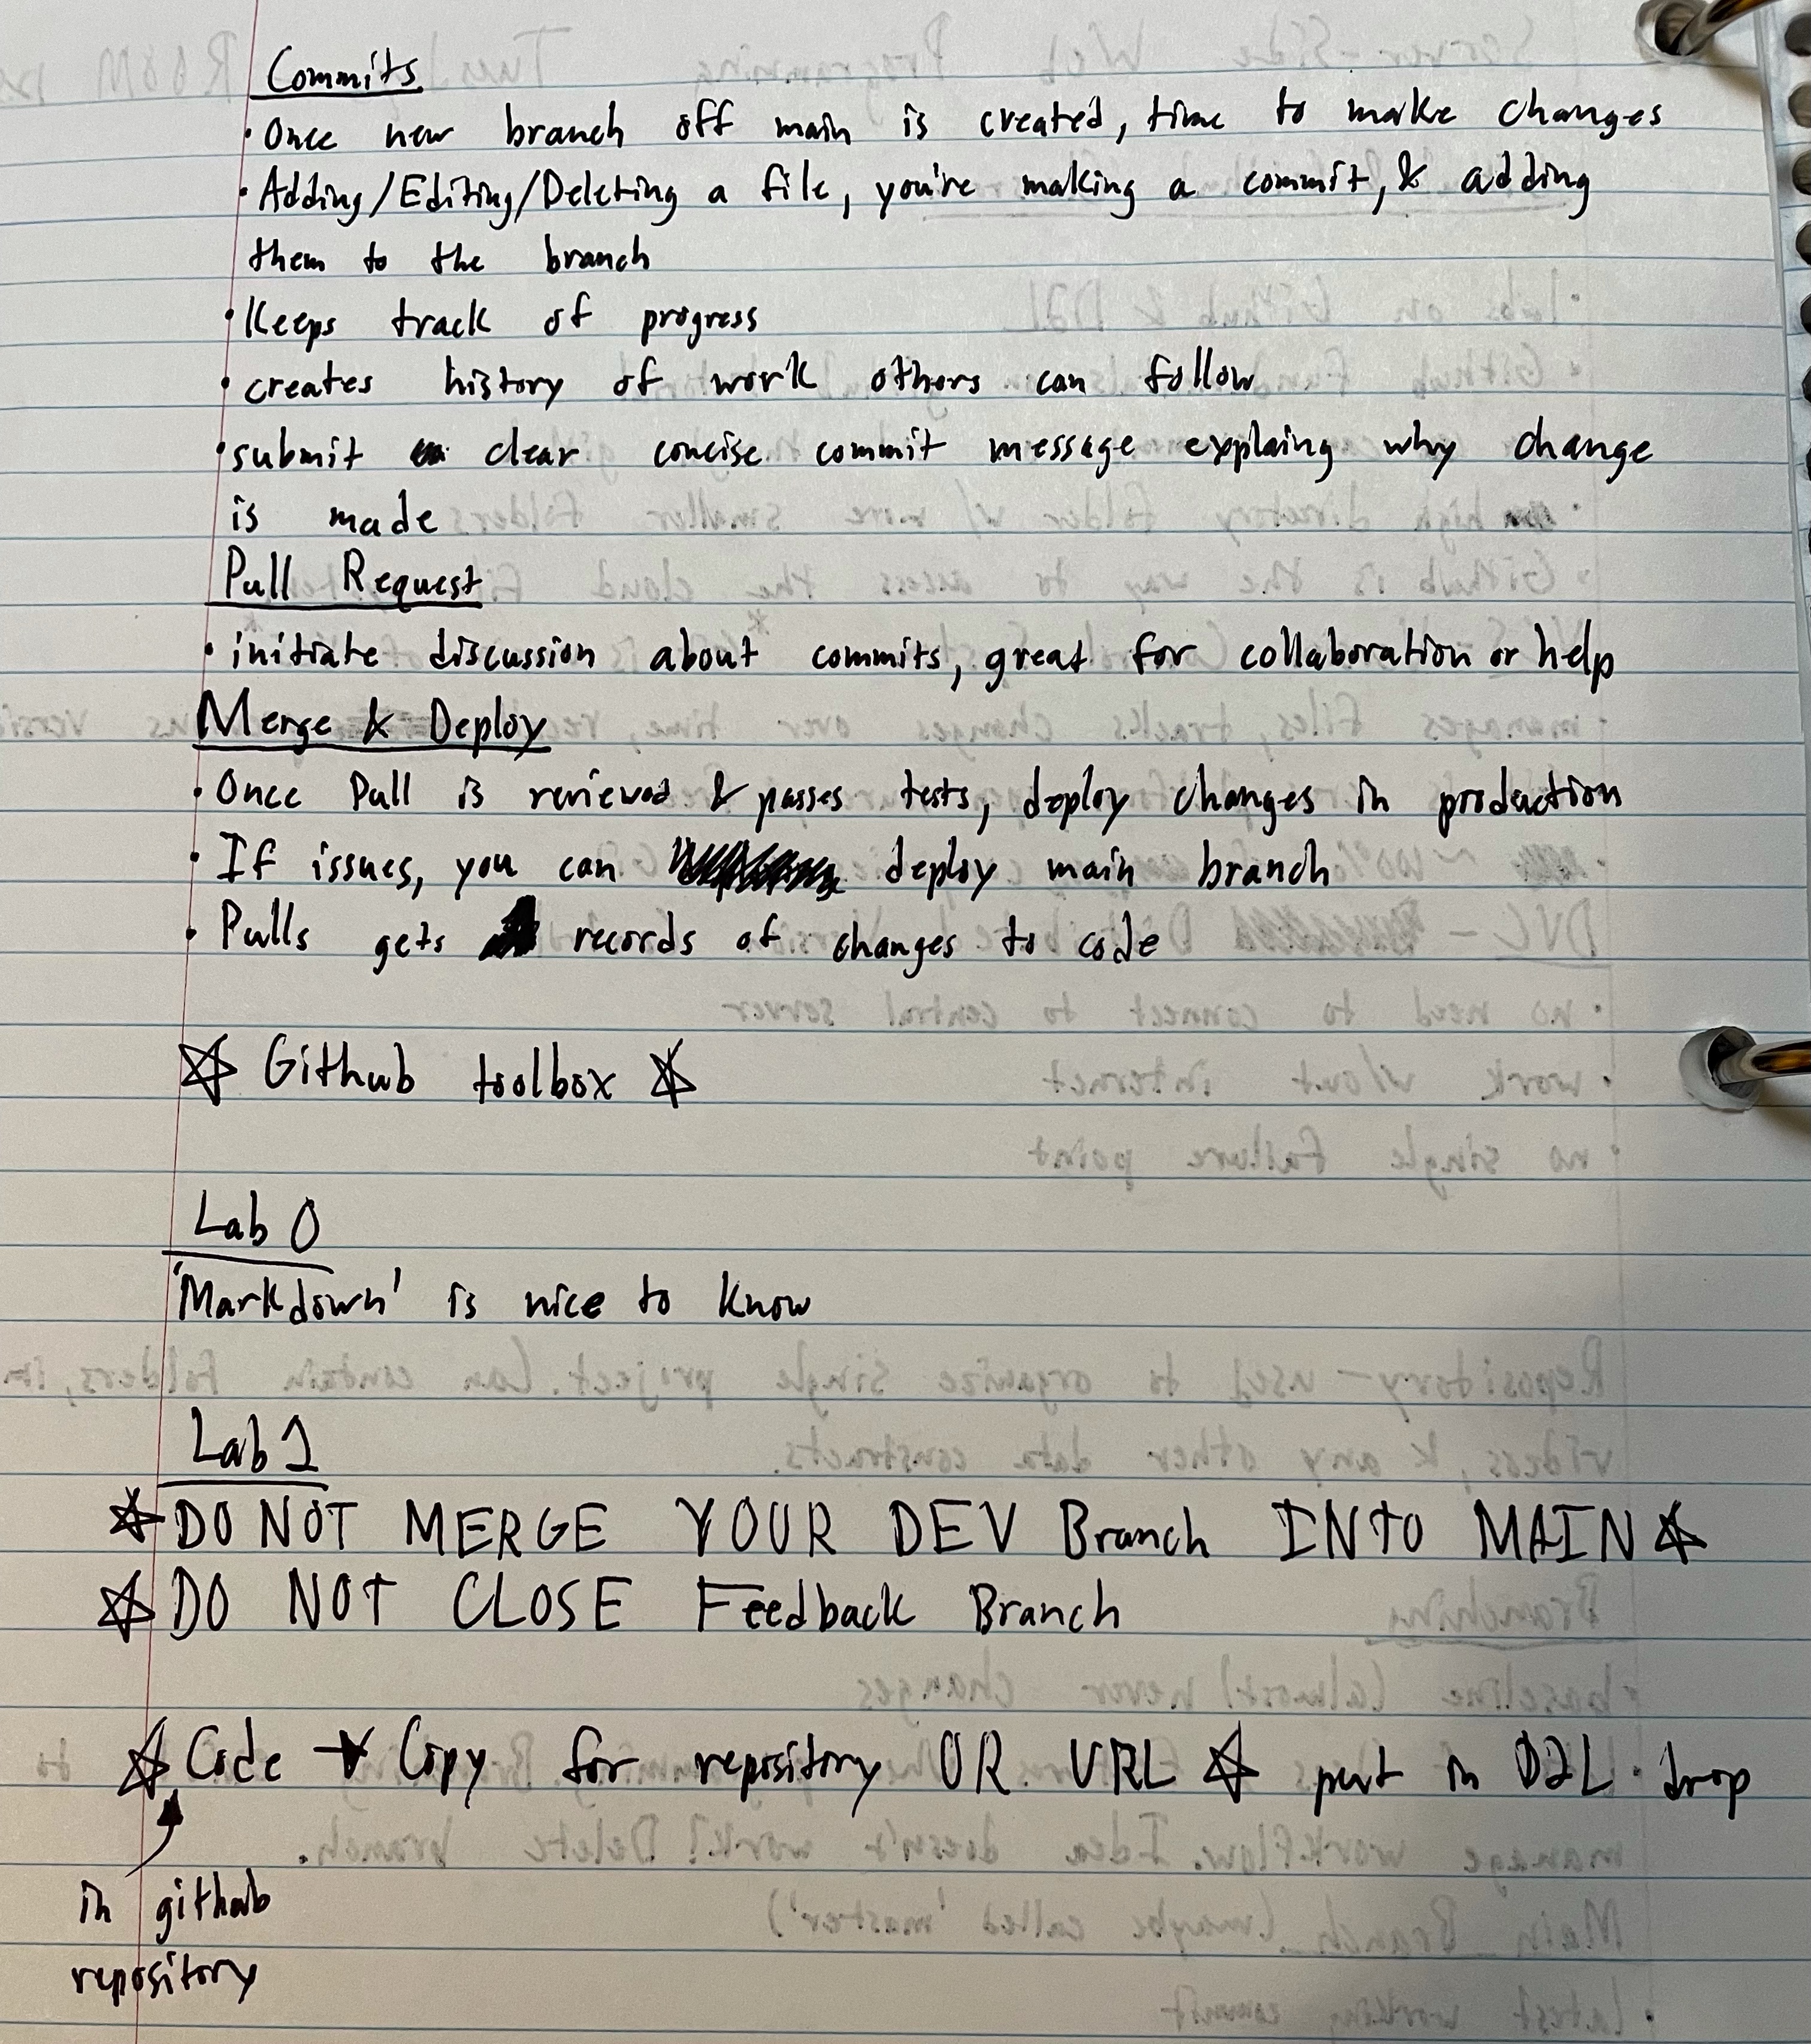 Commits
• Once new branch off main is created, time to make changes
• Adding/Editing/Deleting a file, you're making a commit, & adding
them to the branch
• Keeps track of progress
• creates history of work others can follow
• submit clear concise commit message explaing why change
is made
Pull Request
• initiate discussion about commits, great for collaboration or help
Merge & Deploy
• Once Pull is reviewed & passes tests, deploy changes in production
• If issues, you can deploy main branch
• Pulls gets records of changes to code
☆ Github toolbox ☆
Lab 0
'Markdown' is nice to know
Lab 1
☆ DO NOT MERGE YOUR DEV Branch INTO MAIN ☆
☆ DO NOT CLOSE Feedback Branch
☆ Code → Copy for repository OR URL ☆ put in D2L drop
in github
repository